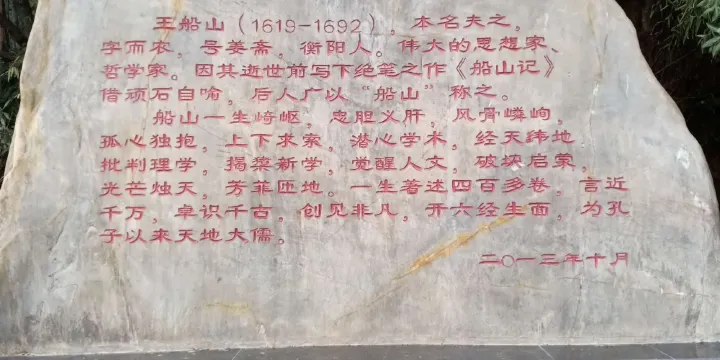 王船山（1619-1692），本名夫之，
字而农，号姜斋，衡阳人。伟大的思想家、
哲学家。因其逝世前写下绝笔之作《船山记》
借顽石自喻，后人广以“船山”称之。
船山一生崎岖，忠胆义肝，风骨嶙峋，
孤心独抱，上下求索，潜心学术，经天纬地
批判理学，揭橥新学，觉醒人文，破块启蒙，
光芒烛天，芳菲匝地。一生著述四百多卷，言近
千万，卓识千古，创见非凡，开六经生面，为孔
子以来天地大儒。
二〇一三年十月